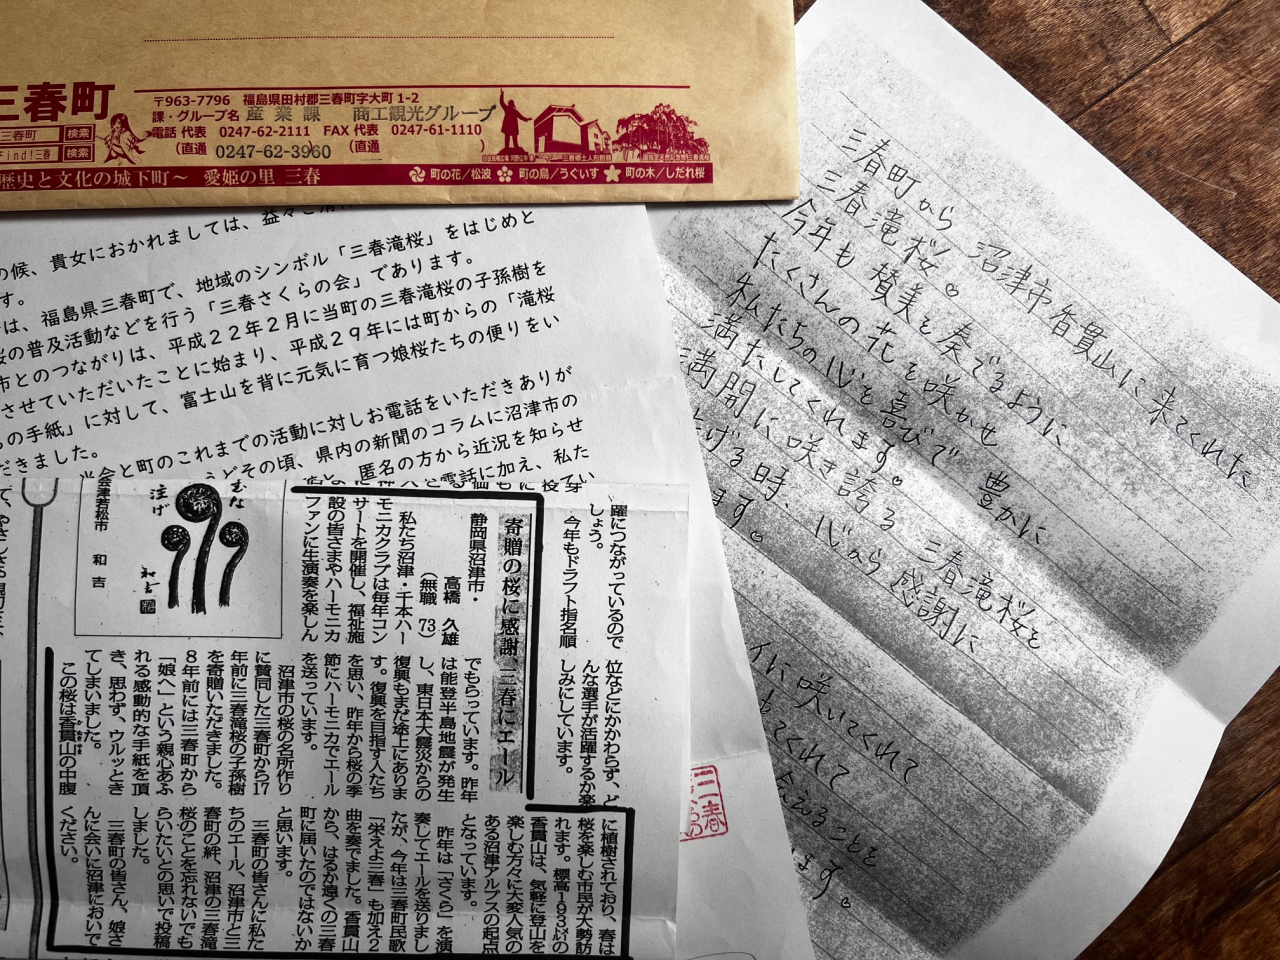 三春町
〒963-7796 福島県田村郡三春町字大町1-2
課・グループ名 産業課 商工観光グループ
電話 代表 0247-62-2111 FAX 代表 0247-61-1110
(直通 0247-62-3960 (直通 )
三春町 検索
Find!三春 検索
歴史と文化の城下町〜 愛姫の里 三春
町の花/松波 町の鳥/うぐいす 町の木/しだれ桜
の候、貴女におかれましては、益々ご清
す。
は、福島県三春町で、地域のシンボル「三春滝桜」をはじめと
桜の普及活動などを行う「三春さくらの会」であります。
市とのつながりは、平成22年2月に当町の三春滝桜の子孫樹を
させていただいたことに始まり、平成29年には町からの「滝桜
の手紙」に対して、富士山を背に元気に育つ娘桜たちの便りをい
だきました。
当会と町のこれまでの活動に対しお電話をいただきありが
うどその頃、県内の新聞のコラムに沼津市の
匿名の方から近況を知らせ
お電話に加え、私た
三春町から 沼津市香貫山に来てくれた
三春滝桜。
今年も 賛美を奏でるように
たくさんの花を咲かせ
私たちの心を喜びで 豊かに
満たしてくれます。
満開に咲き誇る 三春滝桜を
げる時、心から感謝に
ます。
に咲いてくれて
てくれて
会えることを
ます。
躍につながっているので
しょう。
今年もドラフト指名順
位などにかかわらず、ど
んな選手が活躍するか楽
しみにしています。
寄贈の桜に感謝、三春にエール
静岡県沼津市・
高橋 久雄
(無職 73)
私たち沼津・千本ハー
モニカクラブは毎年コン
サートを開催し、福祉施
設の皆さまやハーモニカ
ファンに生演奏を楽しん
でもらっています。昨年
は能登半島地震が発生
し、東日本大震災からの
復興もまだ途上にありま
す。復興を目指す人たち
を思い、昨年から桜の季
節にハーモニカでエール
を送っています。
沼津市の桜の名所作り
に賛同した三春町から17
年前に三春滝桜の子孫樹
を寄贈いただきました。
8年前には三春町から
「娘へ」という親心あふ
れる感動的な手紙を頂
き、思わず、ウルッとき
てしまいました。
この桜は香貫山の中腹
に植樹されており、春は
桜を楽しむ市民が大勢訪
れます。標高193㍍の
香貫山は、気軽に登山を
楽しむ方々に大変人気の
ある沼津アルプスの起点
となっています。
昨年は「さくら」を演
奏してエールを送りまし
たが、今年は三春町民歌
「栄えよ三春」も加え2
曲を奏でました。香貫山
から、はるか遠くの三春
町に届いたのではないか
と思います。
三春町の皆さんに私た
ちのエール、沼津市と三
春町の絆、沼津の三春滝
桜のことを忘れないでも
らいたいとの思いで投稿
しました。
三春町の皆さん、娘さ
んに会いに沼津においで
ください。
注げ
和吉
会津若松市 和吉
三春